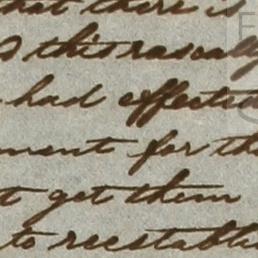 that there is
this rascally
had effected
ment for the
get them
to reestablis